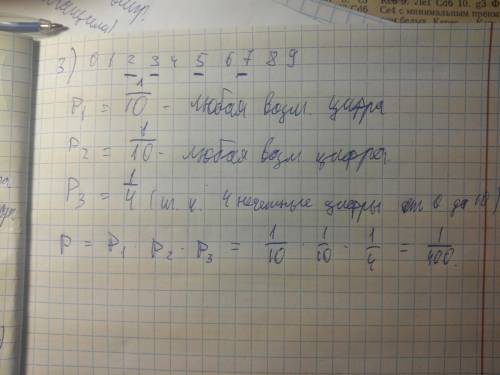 3) 0 1 2 3 4 5 6 7 8 9
P₁ = 1/10 - любая возм. цифра
P₂ = 1/10 - любая возм. цифра
P₃ = 1/4 (т. к. 4 нечетные цифры от 0 до 10)
P = P₁ · P₂ · P₃ = 1/10 · 1/10 · 1/4 = 1/400.